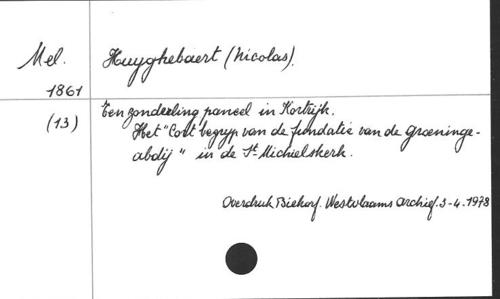 Mel. Huyghebaert (Nicolas).
1861
(13) Een zonderling paneel in Kortrijk.
Het "Cort begryp van de fundatie van de Groeninge-
abdij" in de St-Michielskerk.
Overdruk Biekorf. Westvlaams Archief. 3-4. 1978